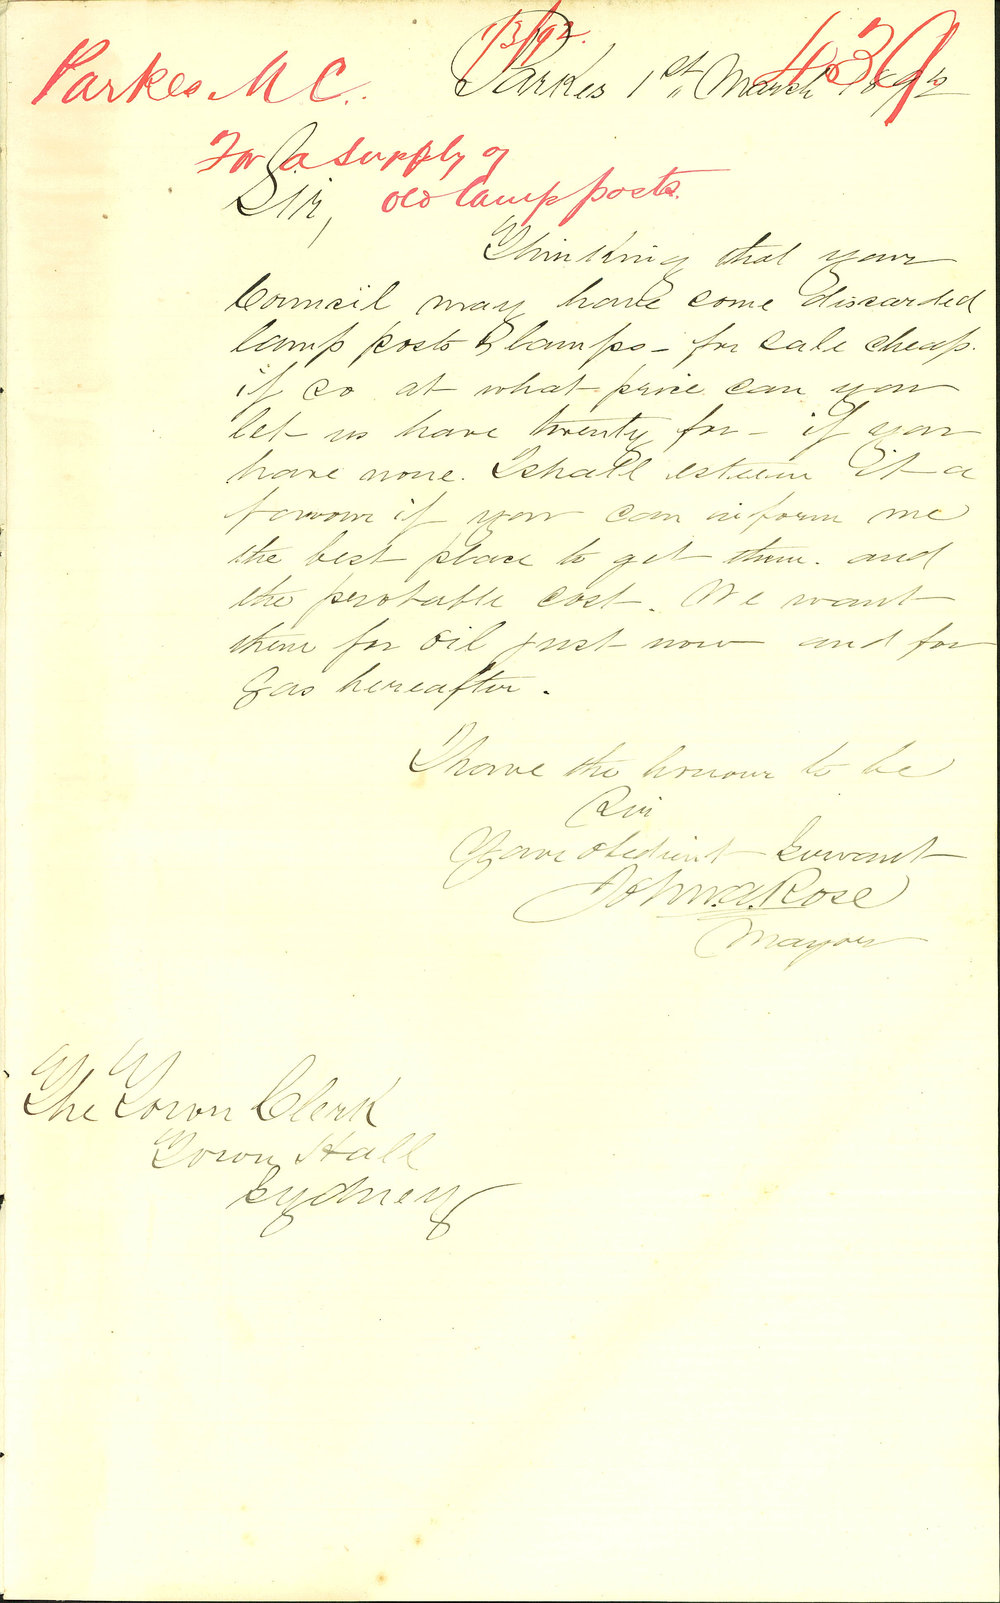 1/3/92.
Parkes M C. 439
Parkes 1st March 1892
For a supply of
old lamp posts.
Sir,
Thinking that your
Council may have some discarded
lamp posts & lamps - for sale cheap.
if so at what price can you
let us have twenty for - if you
have none. I shall esteem it a
favour if you can inform me
the best place to get them. and
the probable cost. We want
them for oil just now and for
gas hereafter.
I have the honour to be
Sir
Your obedient Servant
John A. Rose
Mayor
The Town Clerk
Town Hall
Sydney